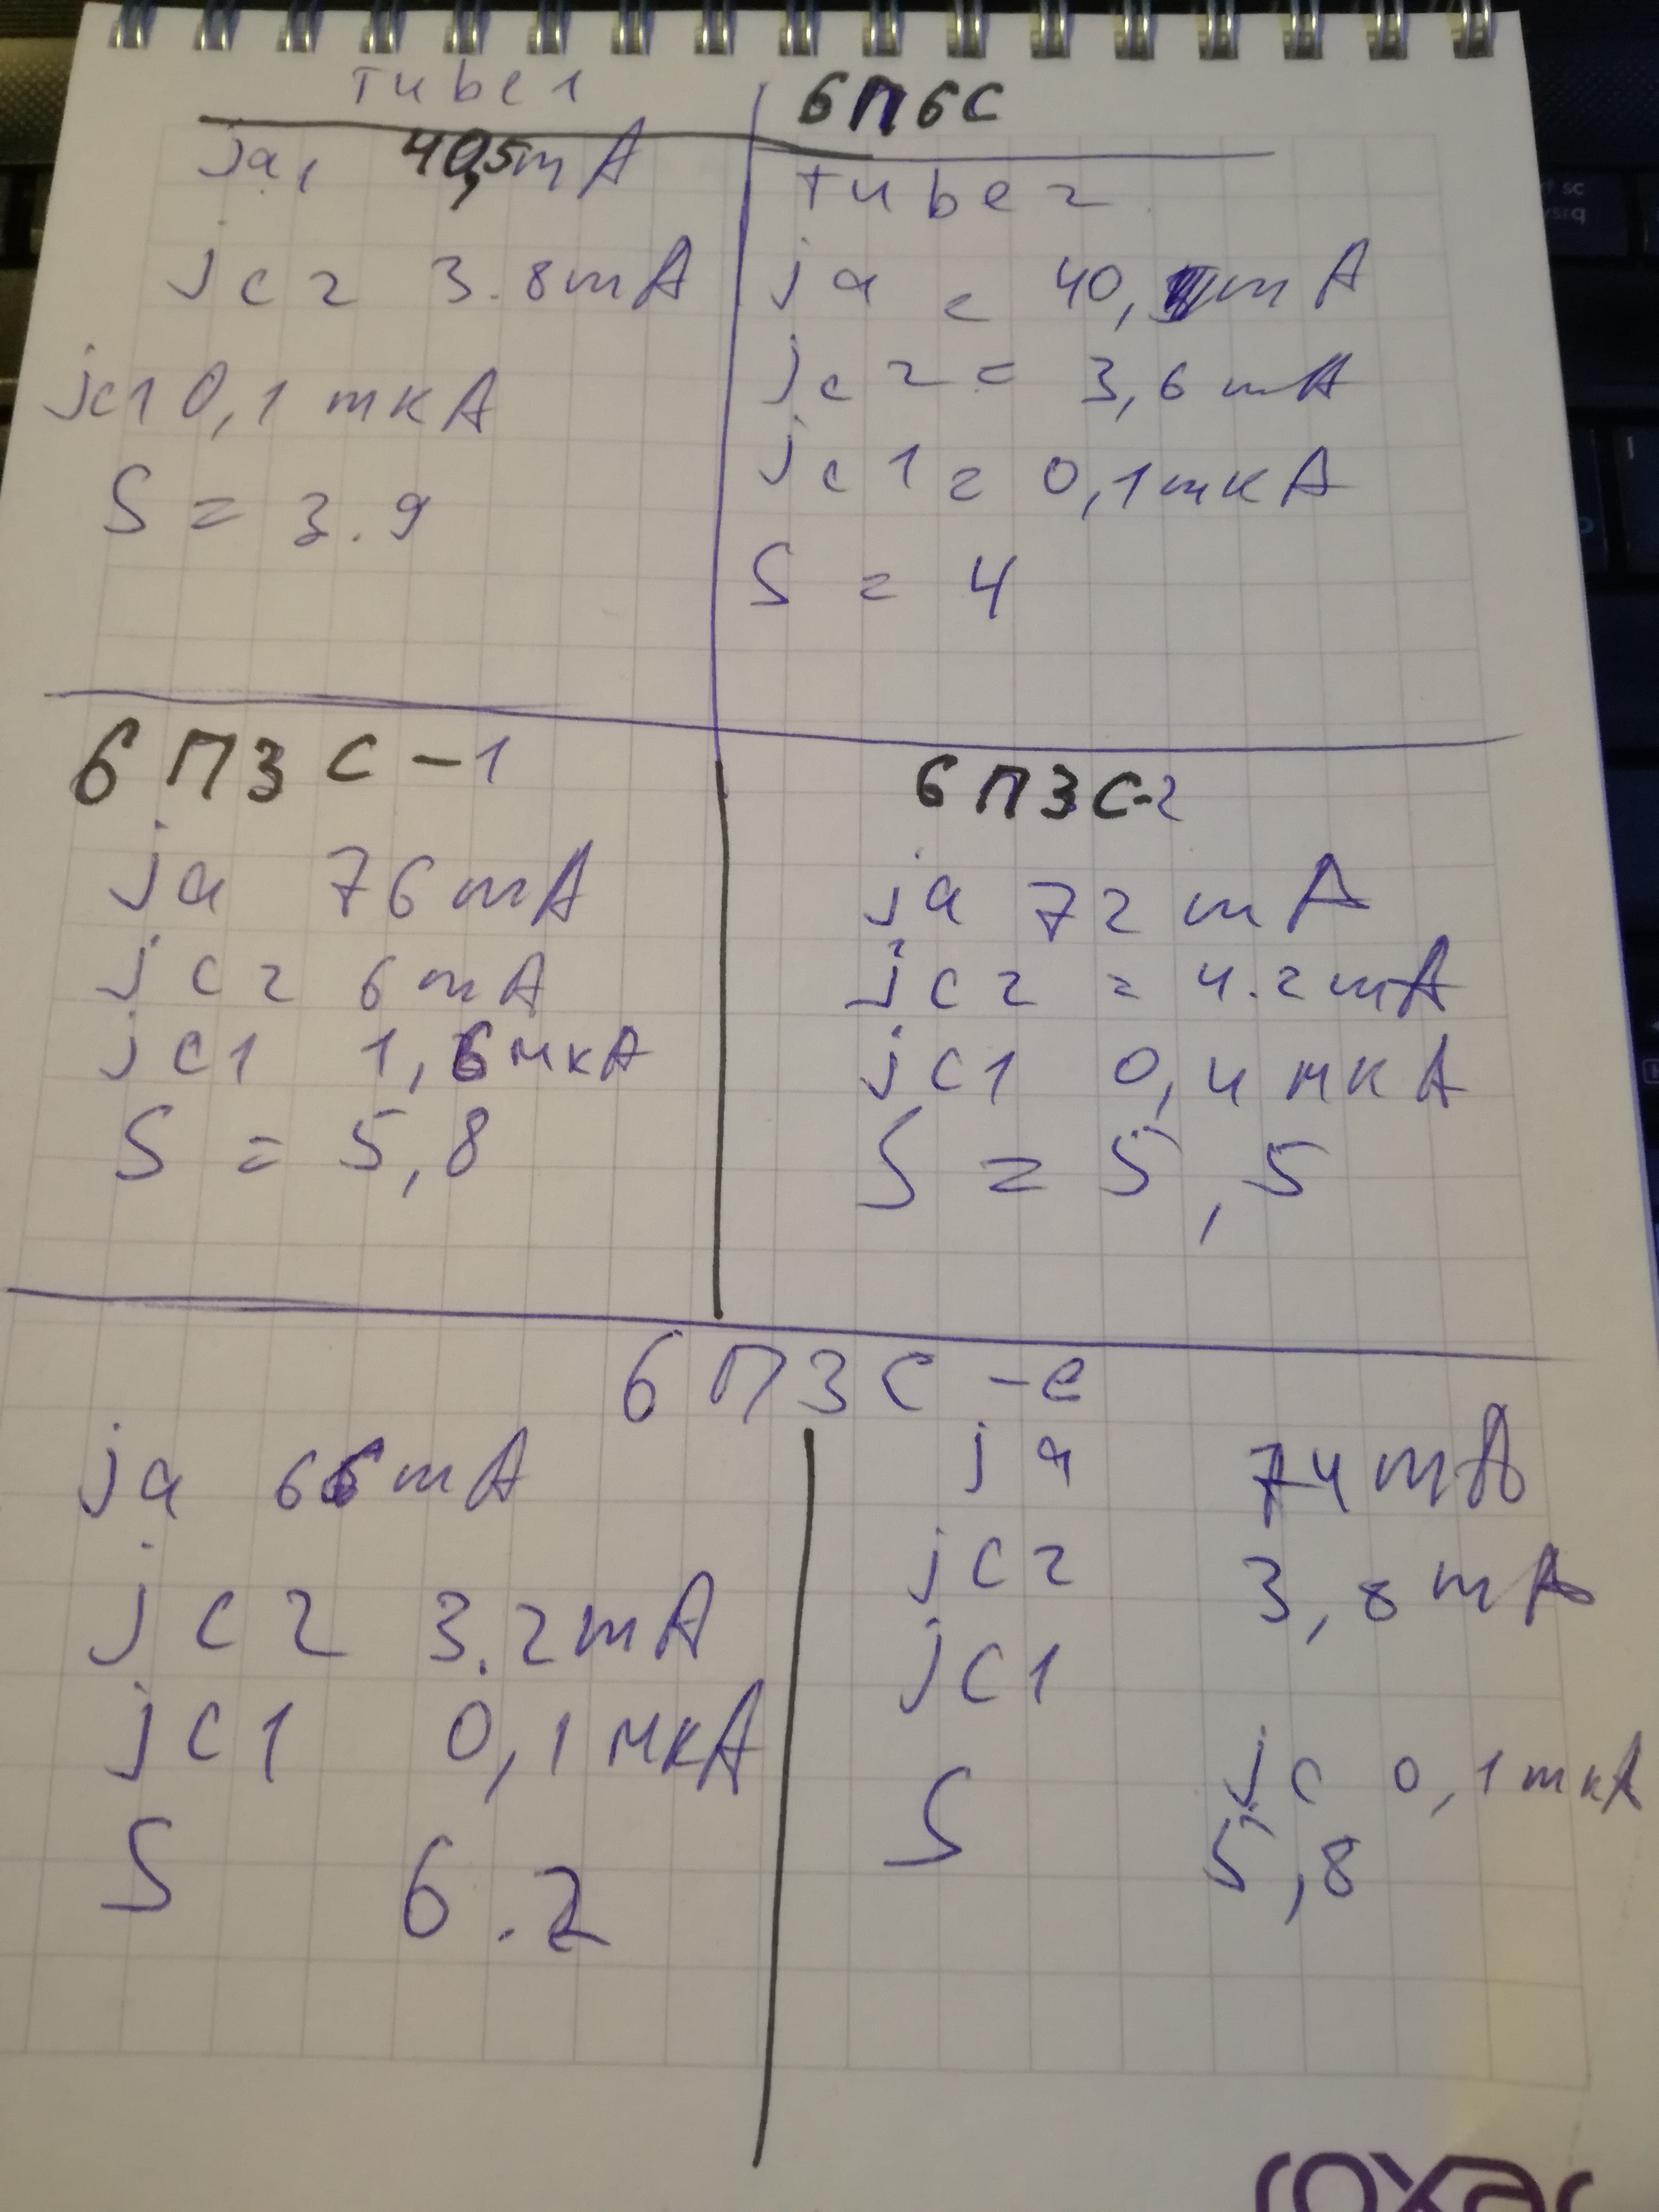 Tube 1
ja, 40,5mA
jc2 3.8mA
jc1 0,1 mкA
S = 3.9
6П6С
Tube 2
ja = 40, mA
jc2 = 3,6 mA
jc1 = 0,1 mкA
S = 4
6П3С-1
ja 76 mA
jc2 6 mA
jc1 1,6 мкA
S = 5,8
6П3С-2
ja 72 mA
jc2 = 4.2mA
jc1 0,4 мкA
S = 5,5
6П3С-е
ja 66mA
jc2 3.2mA
jc1 0,1 мкA
S 6.2
ja 74mA
jc2 3,8mA
jc1
jc 0,1 mкA
S 5,8